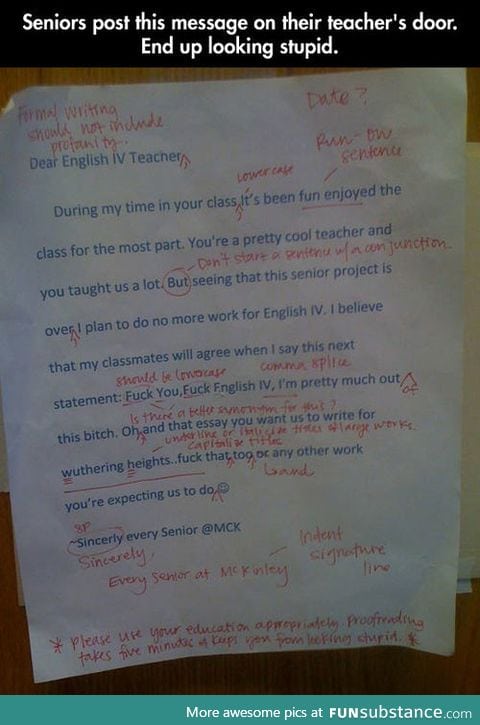 Seniors post this message on their teacher's door.
End up looking stupid.
Formal writing
should not include
profanity.
Date?
Run-on
sentence
Dear English IV Teacher
lowercase
During my time in your class,It's been fun enjoyed the
class for the most part. You're a pretty cool teacher and
Don't start a sentence w/ a conjunction.
you taught us a lot. But seeing that this senior project is
over I plan to do no more work for English IV. I believe
that my classmates will agree when I say this next
should be lowercase
comma splice
statement: Fuck You,Fuck English IV, I'm pretty much out
of
Is there a better synonym for this?
this bitch. Oh and that essay you want us to write for
underline or italicize titles of large works.
capitalize titles
wuthering heights..fuck that too or any other work
and
you're expecting us to do ☺
SP
~Sincerly every Senior @MCK
Sincerely,
Every senior at McKinley
Indent
signature
line
* Please use your education appropriately. Proofreading
takes five minutes & keeps you from looking stupid. *
More awesome pics at FUNsubstance.com